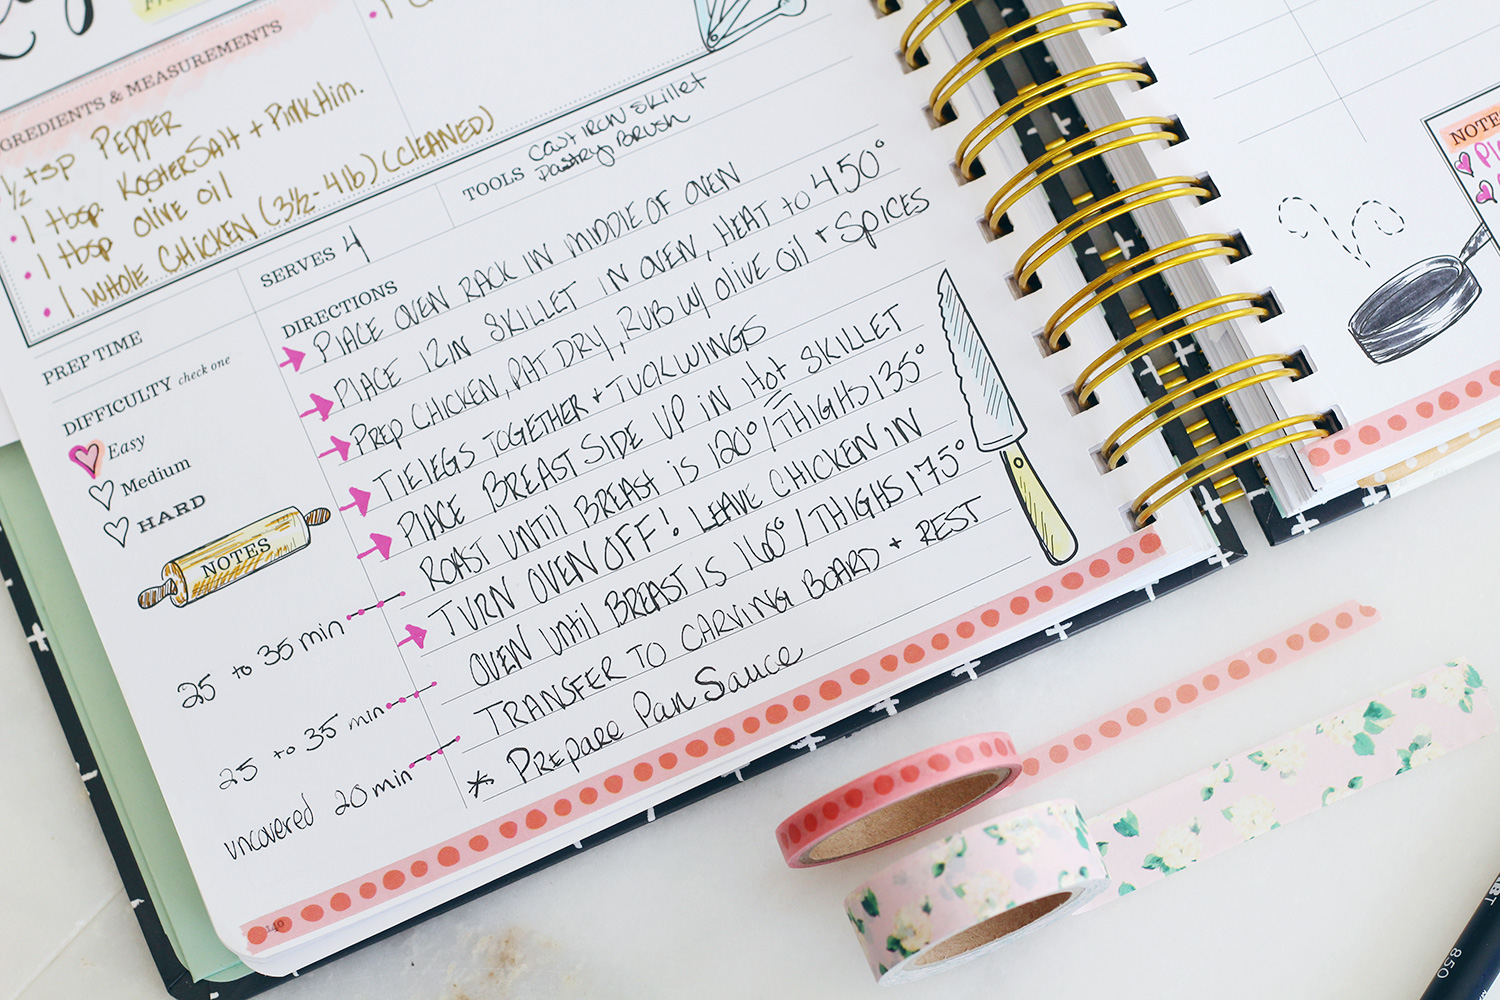 INGREDIENTS & MEASUREMENTS
½ tsp PEPPER
1 tbsp. KOSHER SALT + PINK HIM.
1 tbsp olive oil
1 WHOLE CHICKEN (3½-4lb) (CLEANED)
TOOLS CAST IRON SKILLET
PASTRY BRUSH
SERVES 4
PREP TIME
DIFFICULTY check one
Easy
Medium
HARD
NOTES
25 to 35 min
25 to 35 min
uncovered 20 min
DIRECTIONS
PLACE OVEN RACK IN MIDDLE OF OVEN
PLACE 12IN SKILLET IN OVEN, HEAT to 450°
PREP CHICKEN, PAT DRY, RUB W/ OLIVE OIL + SPICES
TIE LEGS TOGETHER + TUCK WINGS
PLACE BREAST SIDE UP IN Hot SKILLET
ROAST UNTIL BREAST IS 120° / THIGHS 135°
TURN OVEN OFF! LEAVE CHICKEN IN
OVEN until BREAST IS 160° / THIGHS 175°
TRANSFER TO CARVING BOARD + REST
* Prepare Pan Sauce
140
NOTES
850